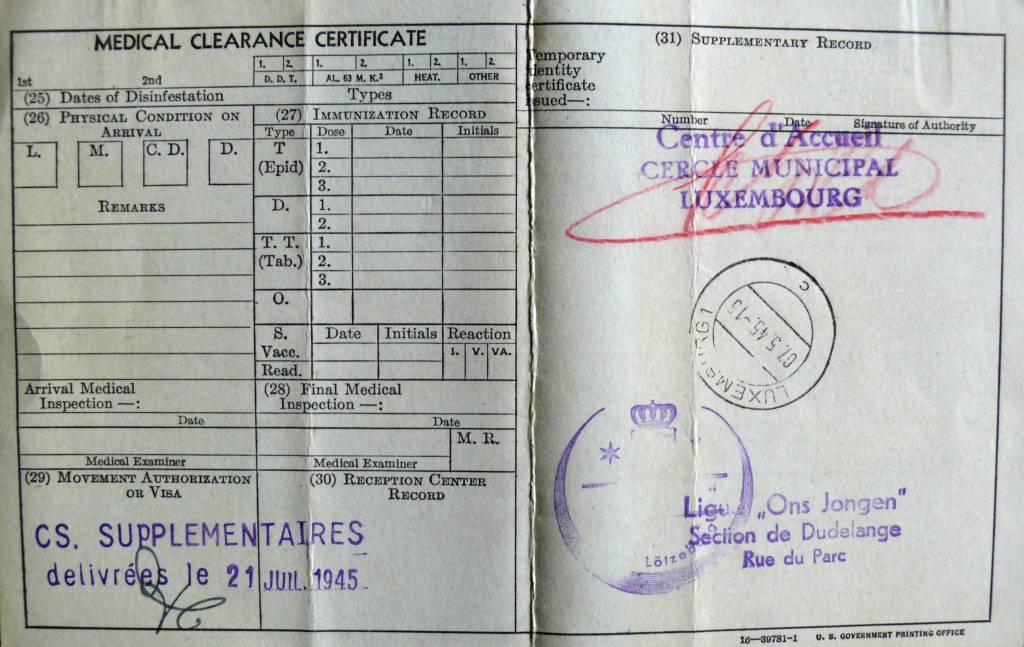 MEDICAL CLEARANCE CERTIFICATE
1st 2nd
1. 2. 1. 2. 1. 2. 1. 2.
D. D. T. AL. 63 M. K.³ HEAT. OTHER
(25) Dates of Disinfestation Types
(26) PHYSICAL CONDITION ON
ARRIVAL
L. M. C. D. D.
REMARKS
(27) IMMUNIZATION RECORD
Type Dose Date Initials
T 1.
(Epid) 2.
3.
D. 1.
2.
T. T. 1.
(Tab.) 2.
3.
O.
S. Date Initials Reaction
Vacc. I. V. VA.
Read.
Arrival Medical
Inspection —:
Date
Medical Examiner
(28) Final Medical
Inspection —:
Date
M. R.
Medical Examiner
(29) MOVEMENT AUTHORIZATION
OR VISA
(30) RECEPTION CENTER
RECORD
CS. SUPPLEMENTAIRES
delivrées le 21 JUIL. 1945
(31) SUPPLEMENTARY RECORD
emporary
dentity
ertificate
sued—:
Number Date Signature of Authority
Centre d'Accueil
CERCLE MUNICIPAL
LUXEMBOURG
LUXEMBOURG 1
07.5.45.-15
C
Ligue „Ons Jongen"
Section de Dudelange
Rue du Parc
16—39781-1 U. S. GOVERNMENT PRINTING OFFICE